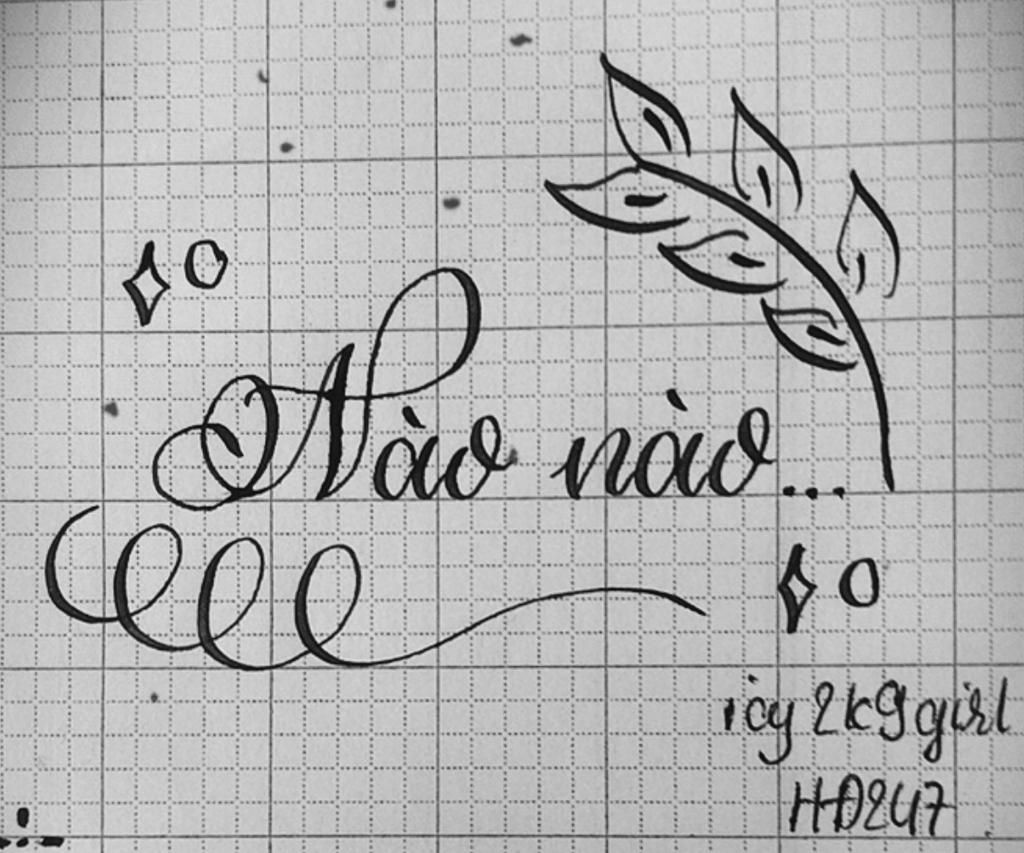 Nào nào...
icy 2k9 girl
HĐ247